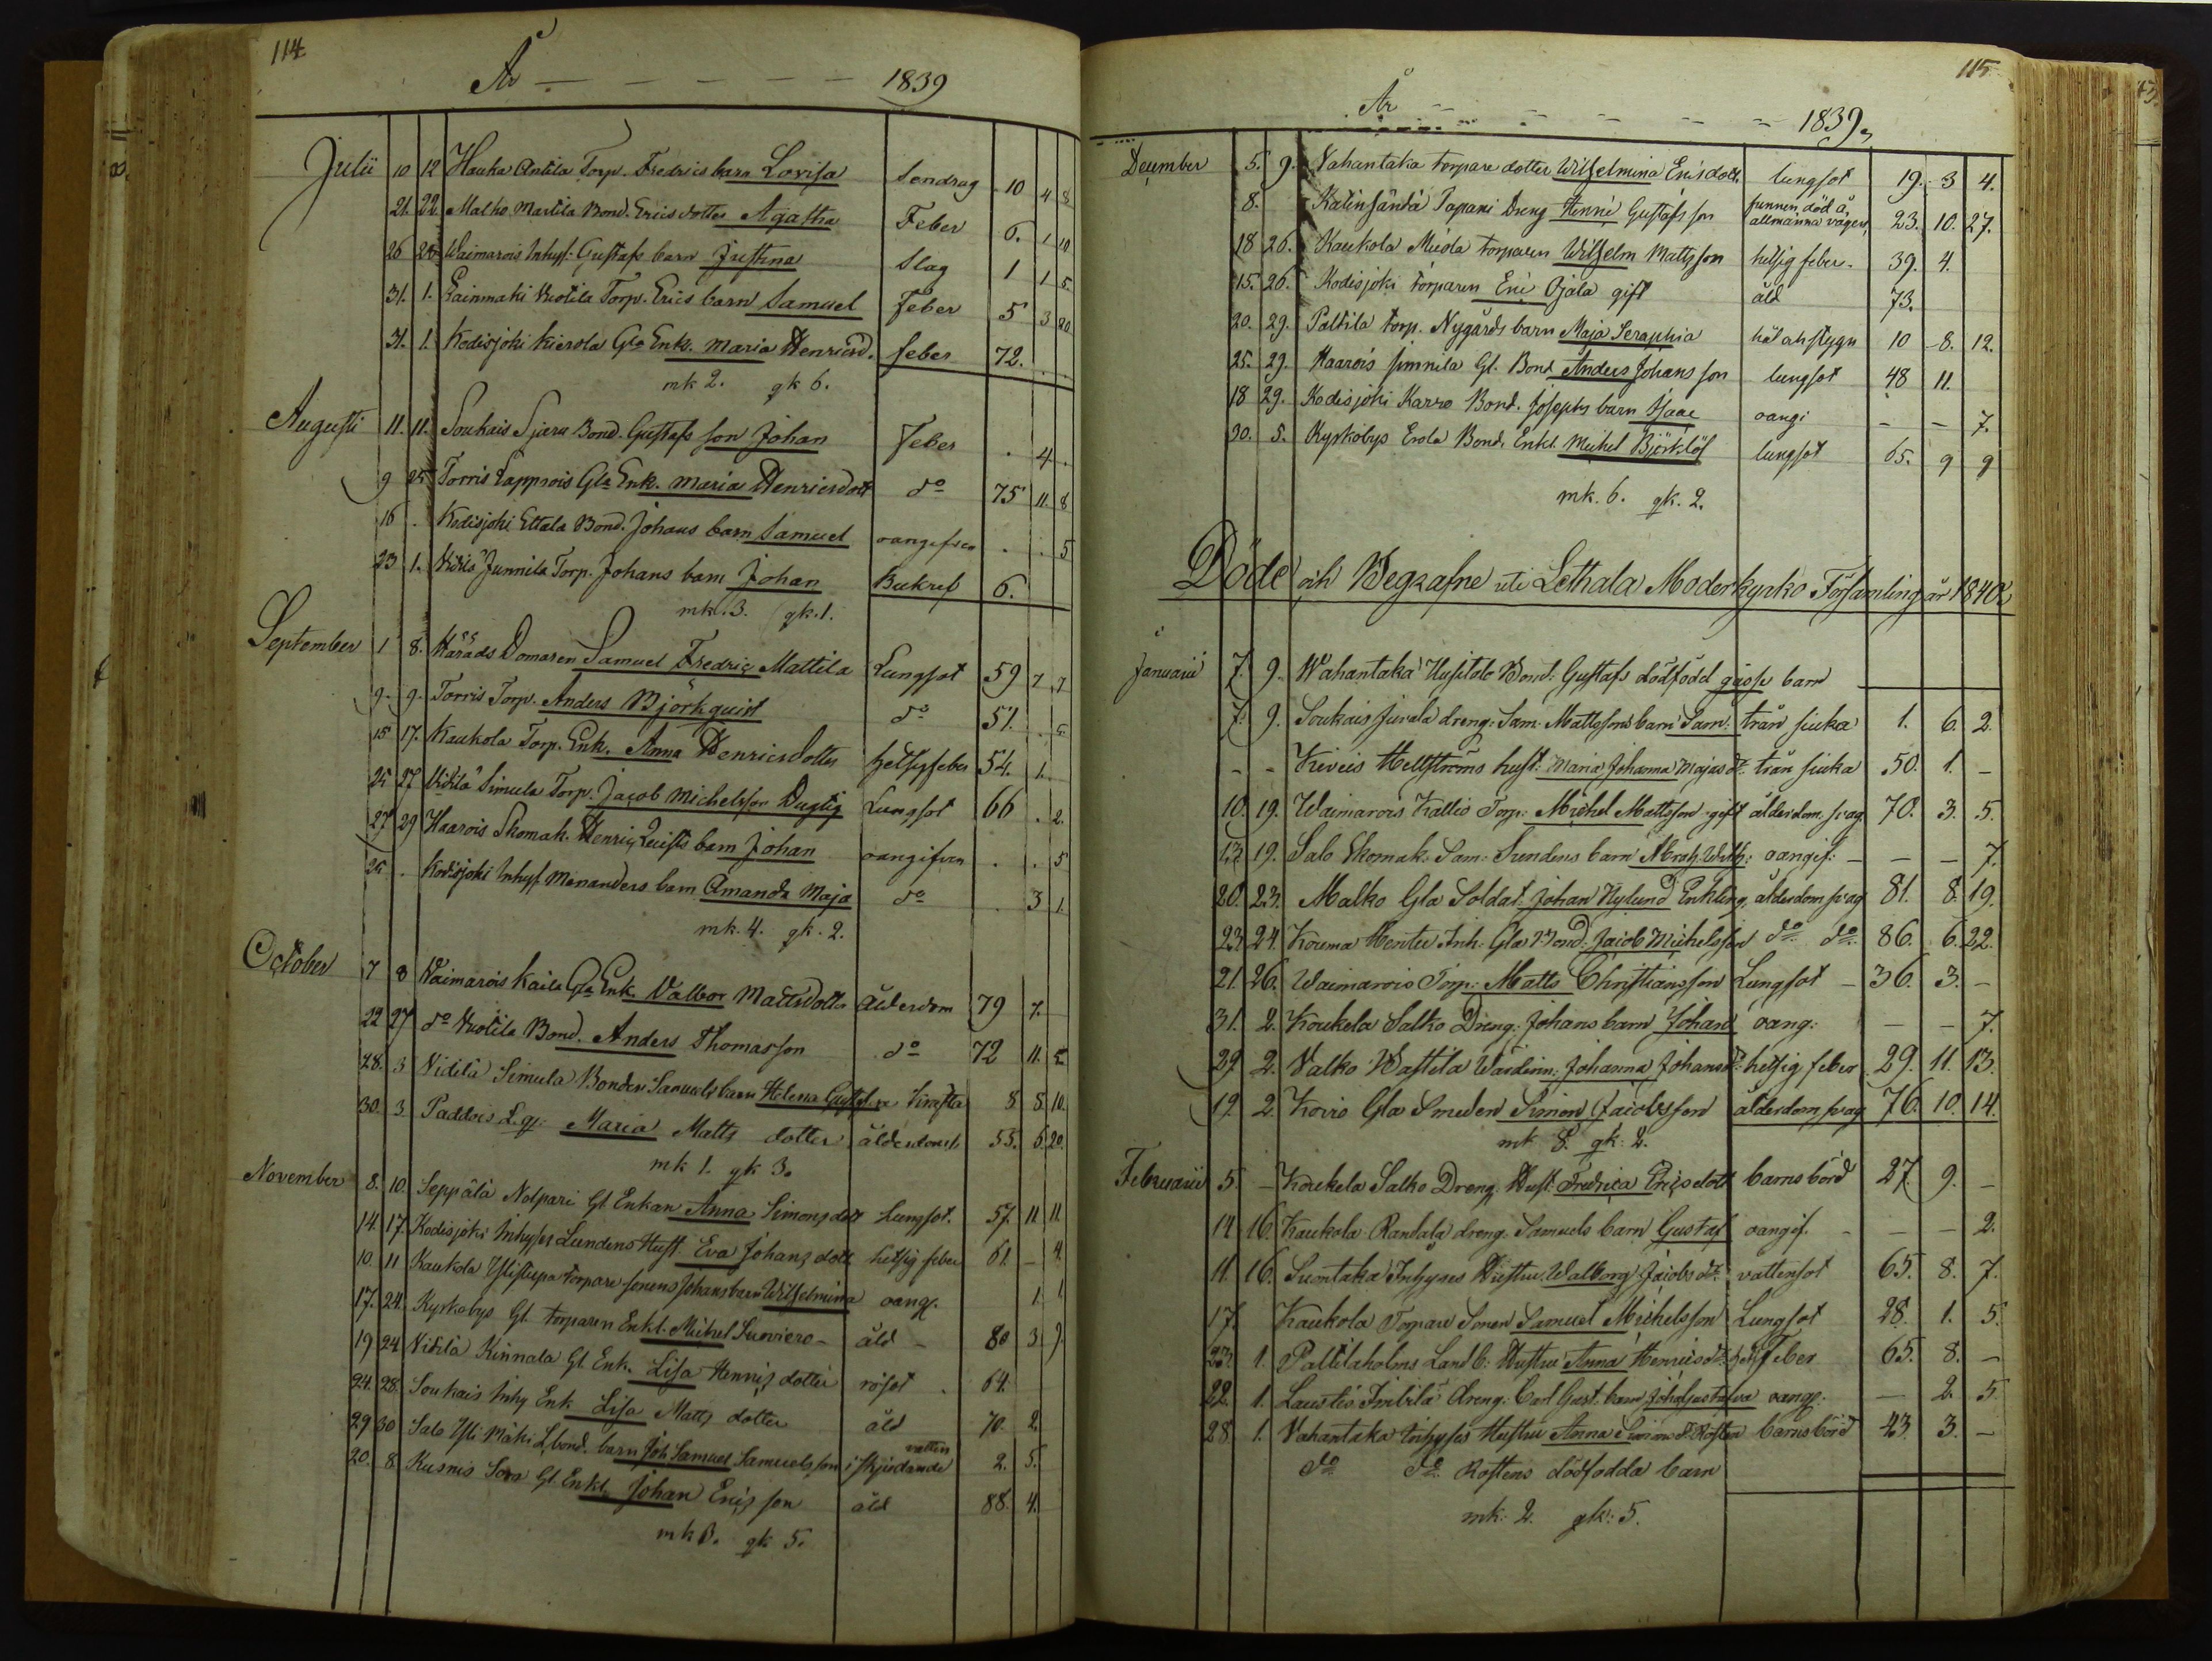 114
År 1839
Julii 10 12 Hauka Antila Torp. Fredrics barn Lovisa Sendrag 10 4 8
21. 22. Malko Martila Bond. Erics dotter Agatha Feber 6. 1 10
26 28 Waimarois Inhys: Gustafs barn Justina Slag 1 1 5.
31. 1. Vuotila Torp. Erics barn Samuel Feber 5 3 20
31. 1. Kodisjoki Kierola Gla Enk. Maria Henricsd. feber 72. . .
mk 2. qk 6.
Augusti 11. 11. Soukais Sjaru Bond. Gustafs son Johan Feber . 4 .
9 25 Torris Lapprois Gla Enk. Maria Henricsdott do 75 11. 8
16 . Kodisjoki Ettala Bond. Johans barn Samuel oangifven . . 5
23 1. Junnila Torp. Johans barn Johan 6.
mk. 3. qk. 1.
September 1 8. Härads Domaren Samuel Fredric Mattila Lungsot 59 7 7
9. 9. Torris Torp. Anders Björkquist do 51. . 5
15 17. Kaukola Torp. Enk. Anna Henricsdotter hetsigfeber 54. 1.
25 27 Simula Torp. Jacob Michelsson Dugtig Lungsot 66 . 2.
27 29 Haarois Skomak. Henric Quists barn Johan oangifven . . 5
25. . Kodisjoki Inhys. Menanders barn Amanda Maja do . 3 1.
mk. 4. qk. 2.
October 7 8 Waimarois Kaila Gla Enk. Valbor Mattsdotter Ålderdom 79 7.
22 27 do Vuotila Bond. Anders Thomasson do 72 11. 5
28. 3 Nidilä Simula Bonden Samuels barn Helena Gustafva 8 8 10.
30. 3. Paddois Maria Matts dotter ålderdomsb 55. 6 20.
mk 1. qk 3.
November 8. 10. Seppälä Nolpari Gl. Enkan Anna Simons dott Lungsot. 57. 11. 11.
14. 17. Kodisjoki Inhyses Lundens Hust. Eva Johans dott hetsig feber 61. - 4.
10. 11 Kaukola Ylistupa torpare sonens Johans barn Wilhelmina oang. 1. 1
17. 24. Kyrkobys Gl. torparen Enkl. Michel Suoniero - åld - 80 3 9.
19 24 Nihlä Kinnala Gl. Enk. Lisa Henrics dotter rösot . 64.
24. 28. Soukais Inhy Enk Lisa Matts dotter åld 70. 2.
29 30 Salo Yli Mäki L. bond. barn Joh: Samuel Samuelsson i skjudande vatten 2. 5.
20. 8 Kusnis Sora Gl. Enkl. Johan Erics son åld 88. 4.
mk 3. qk 5.
115
År 1839.
December 5. 9. Vahantaka torpare dotter Wilhelmina Ericsdott. lungsot 19. 3 4.
8. Katinhäntä Tapani Dreng Henric Gustafs son funnen död å allmänna vägen, 23. 10. 27.
18 26. Kaukola Meola torparen Wilhelm Mattsson hetsig feber. 39. 4.
15. 26. Kodisjoki torparen Eric Ojala gift åld 73.
20. 29. Paltila torp. Nygårds barn Maja Seraphia hål och stygn 10 8. 12.
25. 29. Haarois Sinnila Gl. Bond Anders Johans son lungsot 48 11.
18 29. Kodisjoki Karro Bond. Josephs barn Isaac oangi - - 7.
30. 5. Kyrkobys Erola Bond. Enkl. Michel Björklöf lungsot 65. 9 9
mk. 6. qk. 2.
Döde och Begrafne uti Lethala Moderkyrko Församling år 1840.
Januarii 7. 9. Wahantaka Uusitalo Bond. Gustafs dödfödd gosse barn
7. 9. Soukais Juvala dreng. Sam. Mattssons barn Sam. trån siuka 1. 6. 2.
- - Kiveis Hellströms hust: Maria Johanna Majas dr. trån siuka 50. 1. -
10. 19. Waimarois Kallio Torp. Michel Mattsson gift ålderdom svag 70. 3. 5.
13. 19. Salo Skomak. Sam: Sundens barn Abrah. Wilh: oangif: - - - 7.
20. 23. Malko Gla Soldat. Johan Nylund Enkling ålderdom svag 81. 8. 19.
23. 24. Kouma Hentu Inh: Gla Bond. Jacob Michelsson do do 86. 6. 22.
21. 26. Waimarois Torp: Matts Christiansson Lungsot - 36. 3. -
31. 2. Koukela Salko Dreng. Johans barn Johan oang: - - 7.
29. 2. Valko Wastila Wärdinn. Johanna Johans dr hetsig feber 29. 11. 13.
19. 2. Kovio Gla Smeden Simon Jacobsson ålderdom svag 76. 10. 14.
mk 8. qk: 2.
Februarii 5. - Koukela Salko Dreng. Hust. Fredrica Ericsdott barnsbörd 27. 9. -
14 16. Kaukola Randala dreng. Samuels barn Gustaf oangif. - - - 2.
11. 16. Suontaka Inhyses Hustru Walborg Jacobs dr. vattensot 65. 8. 7.
17. Kaukola Torpare Sonen Samuel Michelsson Lungsot 28. 1. 5.
23. 1. Paltilaholms Landb: Hustru Anna Henrics dr. hets Feber 65. 8. -
22. 1. Laustis dreng. Carl Gust. barn Joha Gustafva oang. - 2. 5
28. 1. Vahantaka Inhyses Hustru Anna Simons d. Rosten barnsbörd 43. 3. -
do do Rostens dödfödda barn
mk: 2. qk: 5.